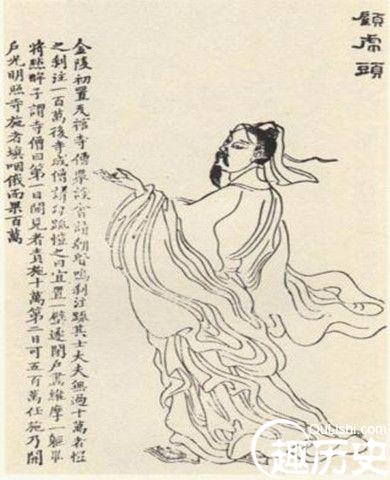 顧虎頭
金陵初置瓦棺寺僧衆設會請朝賢鳴刹注疏其士大夫無過十萬者愷
之刹注一百萬後寺成僧請勾疏愷之曰宜置一壁遂閉戶畫維摩一軀畢
將點眸子謂寺僧曰第一日開見者責施十萬第二日可五百萬任施乃開
戶光明照寺施者填咽俄而果百萬
QuLiShi.com
趣历史